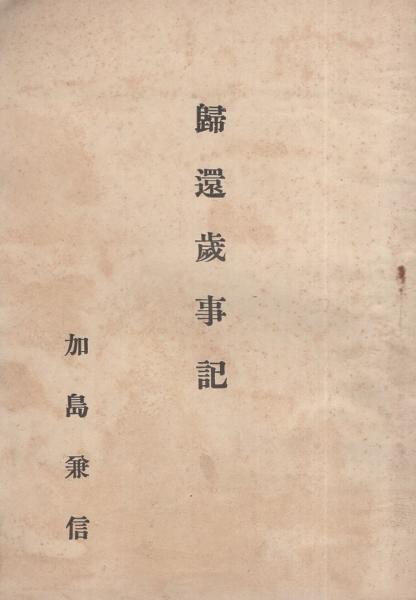 歸還歲事記
加島兼信